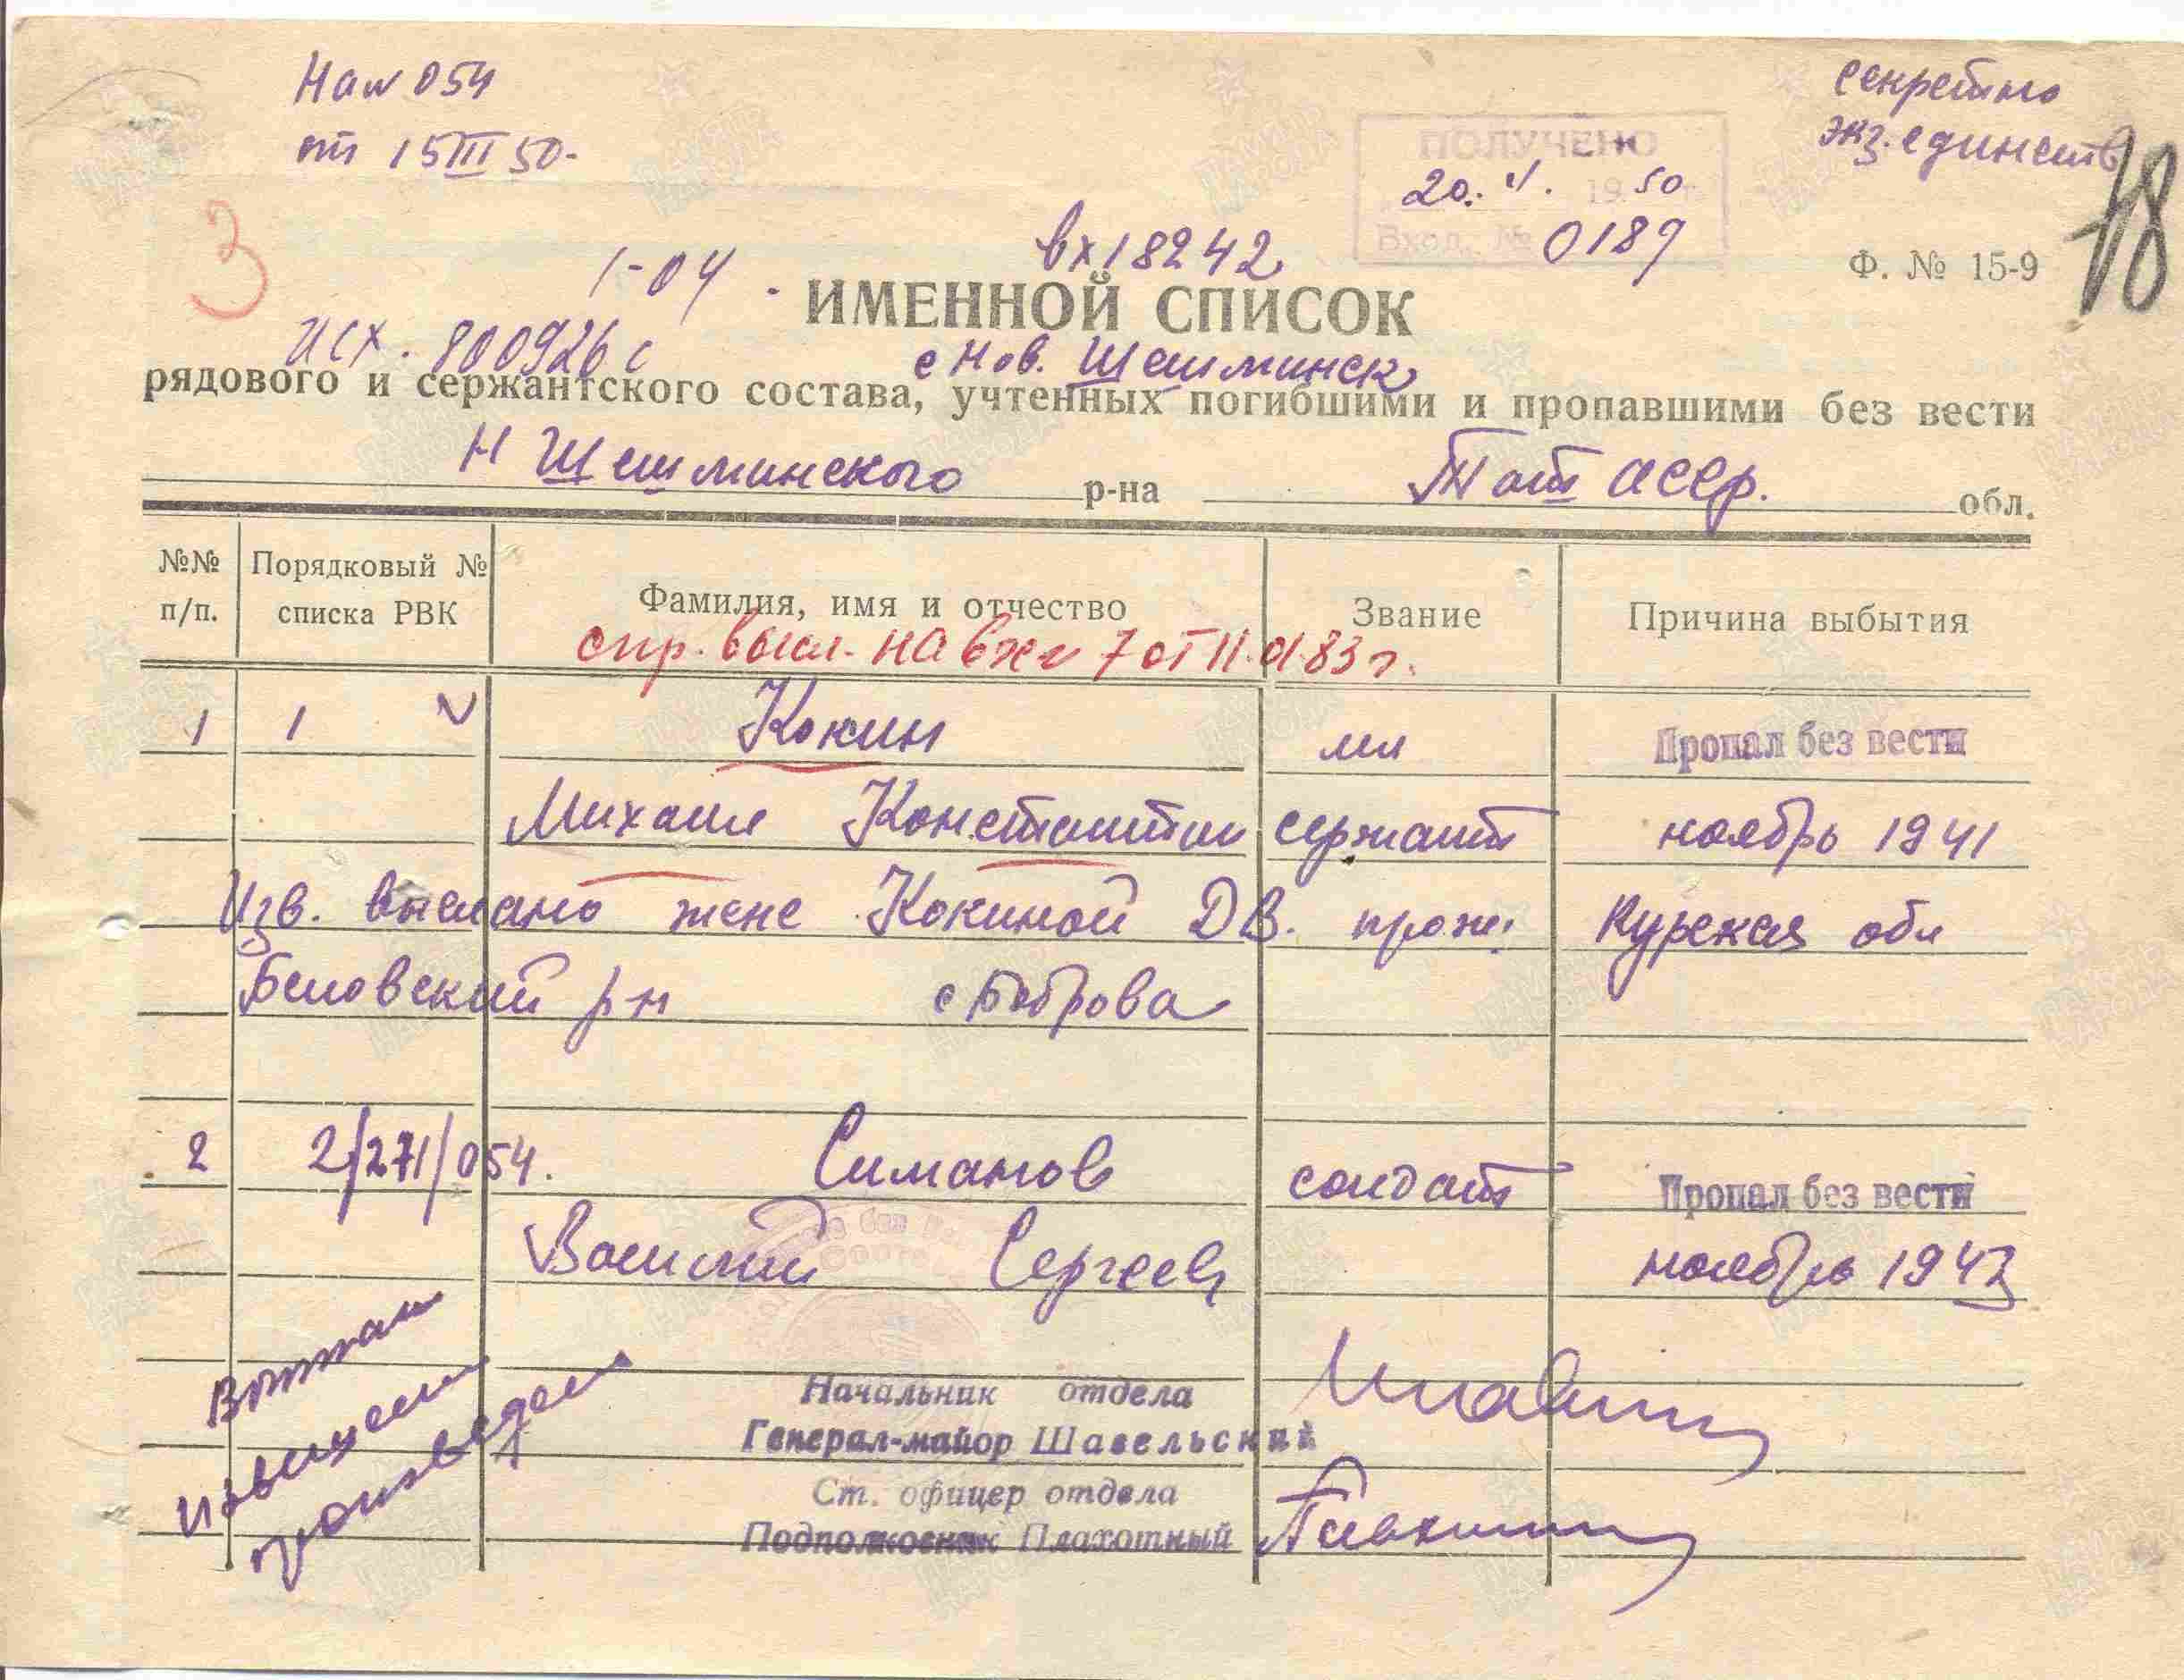 На № 054
от 15 III 50-
секретно
экз. единств
18
ПОЛУЧЕНО
20. 1950
Вход. № 0189
3
1-04
вх 18242
Ф. № 15-9
ИМЕННОЙ СПИСОК
исх. 800926 с
с Нов. Шешминск
рядового и сержантского состава, учтенных погибшими и пропавшими без вести
Н Шешминского р-на Тат АССР. обл.
№№ п/п.
Порядковый № списка РВК
Фамилия, имя и отчество
Звание
Причина выбытия
спр. высл. на вх № 7 от 11.01.83 г.
1 1 Кокин мл Пропал без вести
Михаил Константин сержант ноябрь 1941
Изв. выслано жене Кокиной Д В. прож: Курская обл
Беловский р-н с Боброва
2 2/271/054. Симанов солдат Пропал без вести
Василий Сергеев ноябрь 1943
Начальник отдела
Генерал-майор Шавельский
Ст. офицер отдела
Подполковник Плахотный